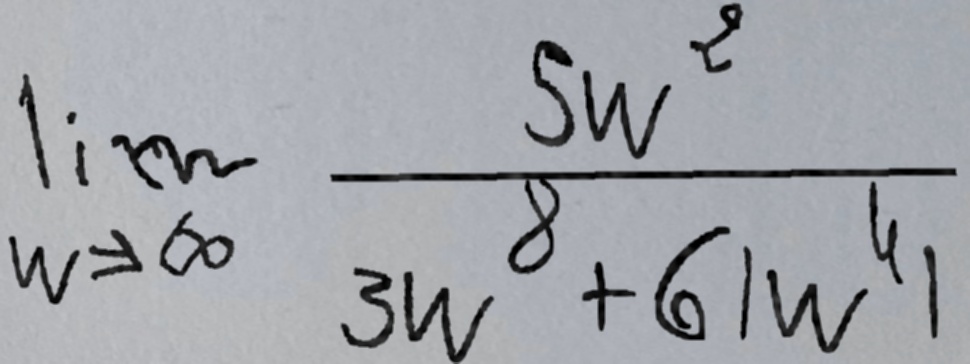 \lim_{w \to \infty} \frac{5w^2}{3w^8 + 6|w^4|}